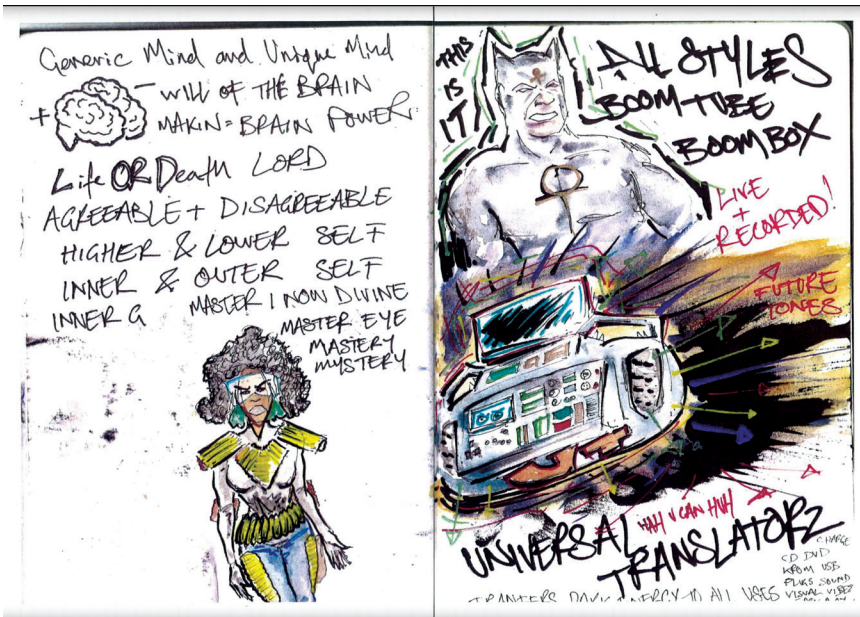 Generic Mind and Unique Mind
+ - WILL OF THE BRAIN
MAKIN = BRAIN POWER
Life OR Death LORD
AGREEABLE + DISAGREEABLE
HIGHER & LOWER SELF
INNER & OUTER SELF
INNER G MASTER I NOW DIVINE
MASTER EYE
MASTERY
MYSTERY
THIS
IS
IT
ALL STYLES
BOOM-TUBE
BOOM BOX
LIVE
+
RECORDED!
FUTURE
TONES
HAH V CAN HUH
UNIVERSAL
TRANSLATORZ
CHARGE
CD DVD
USB
PLUGS SOUND
VISUAL VIBEZ
DARK ENERGY TO ALL USES